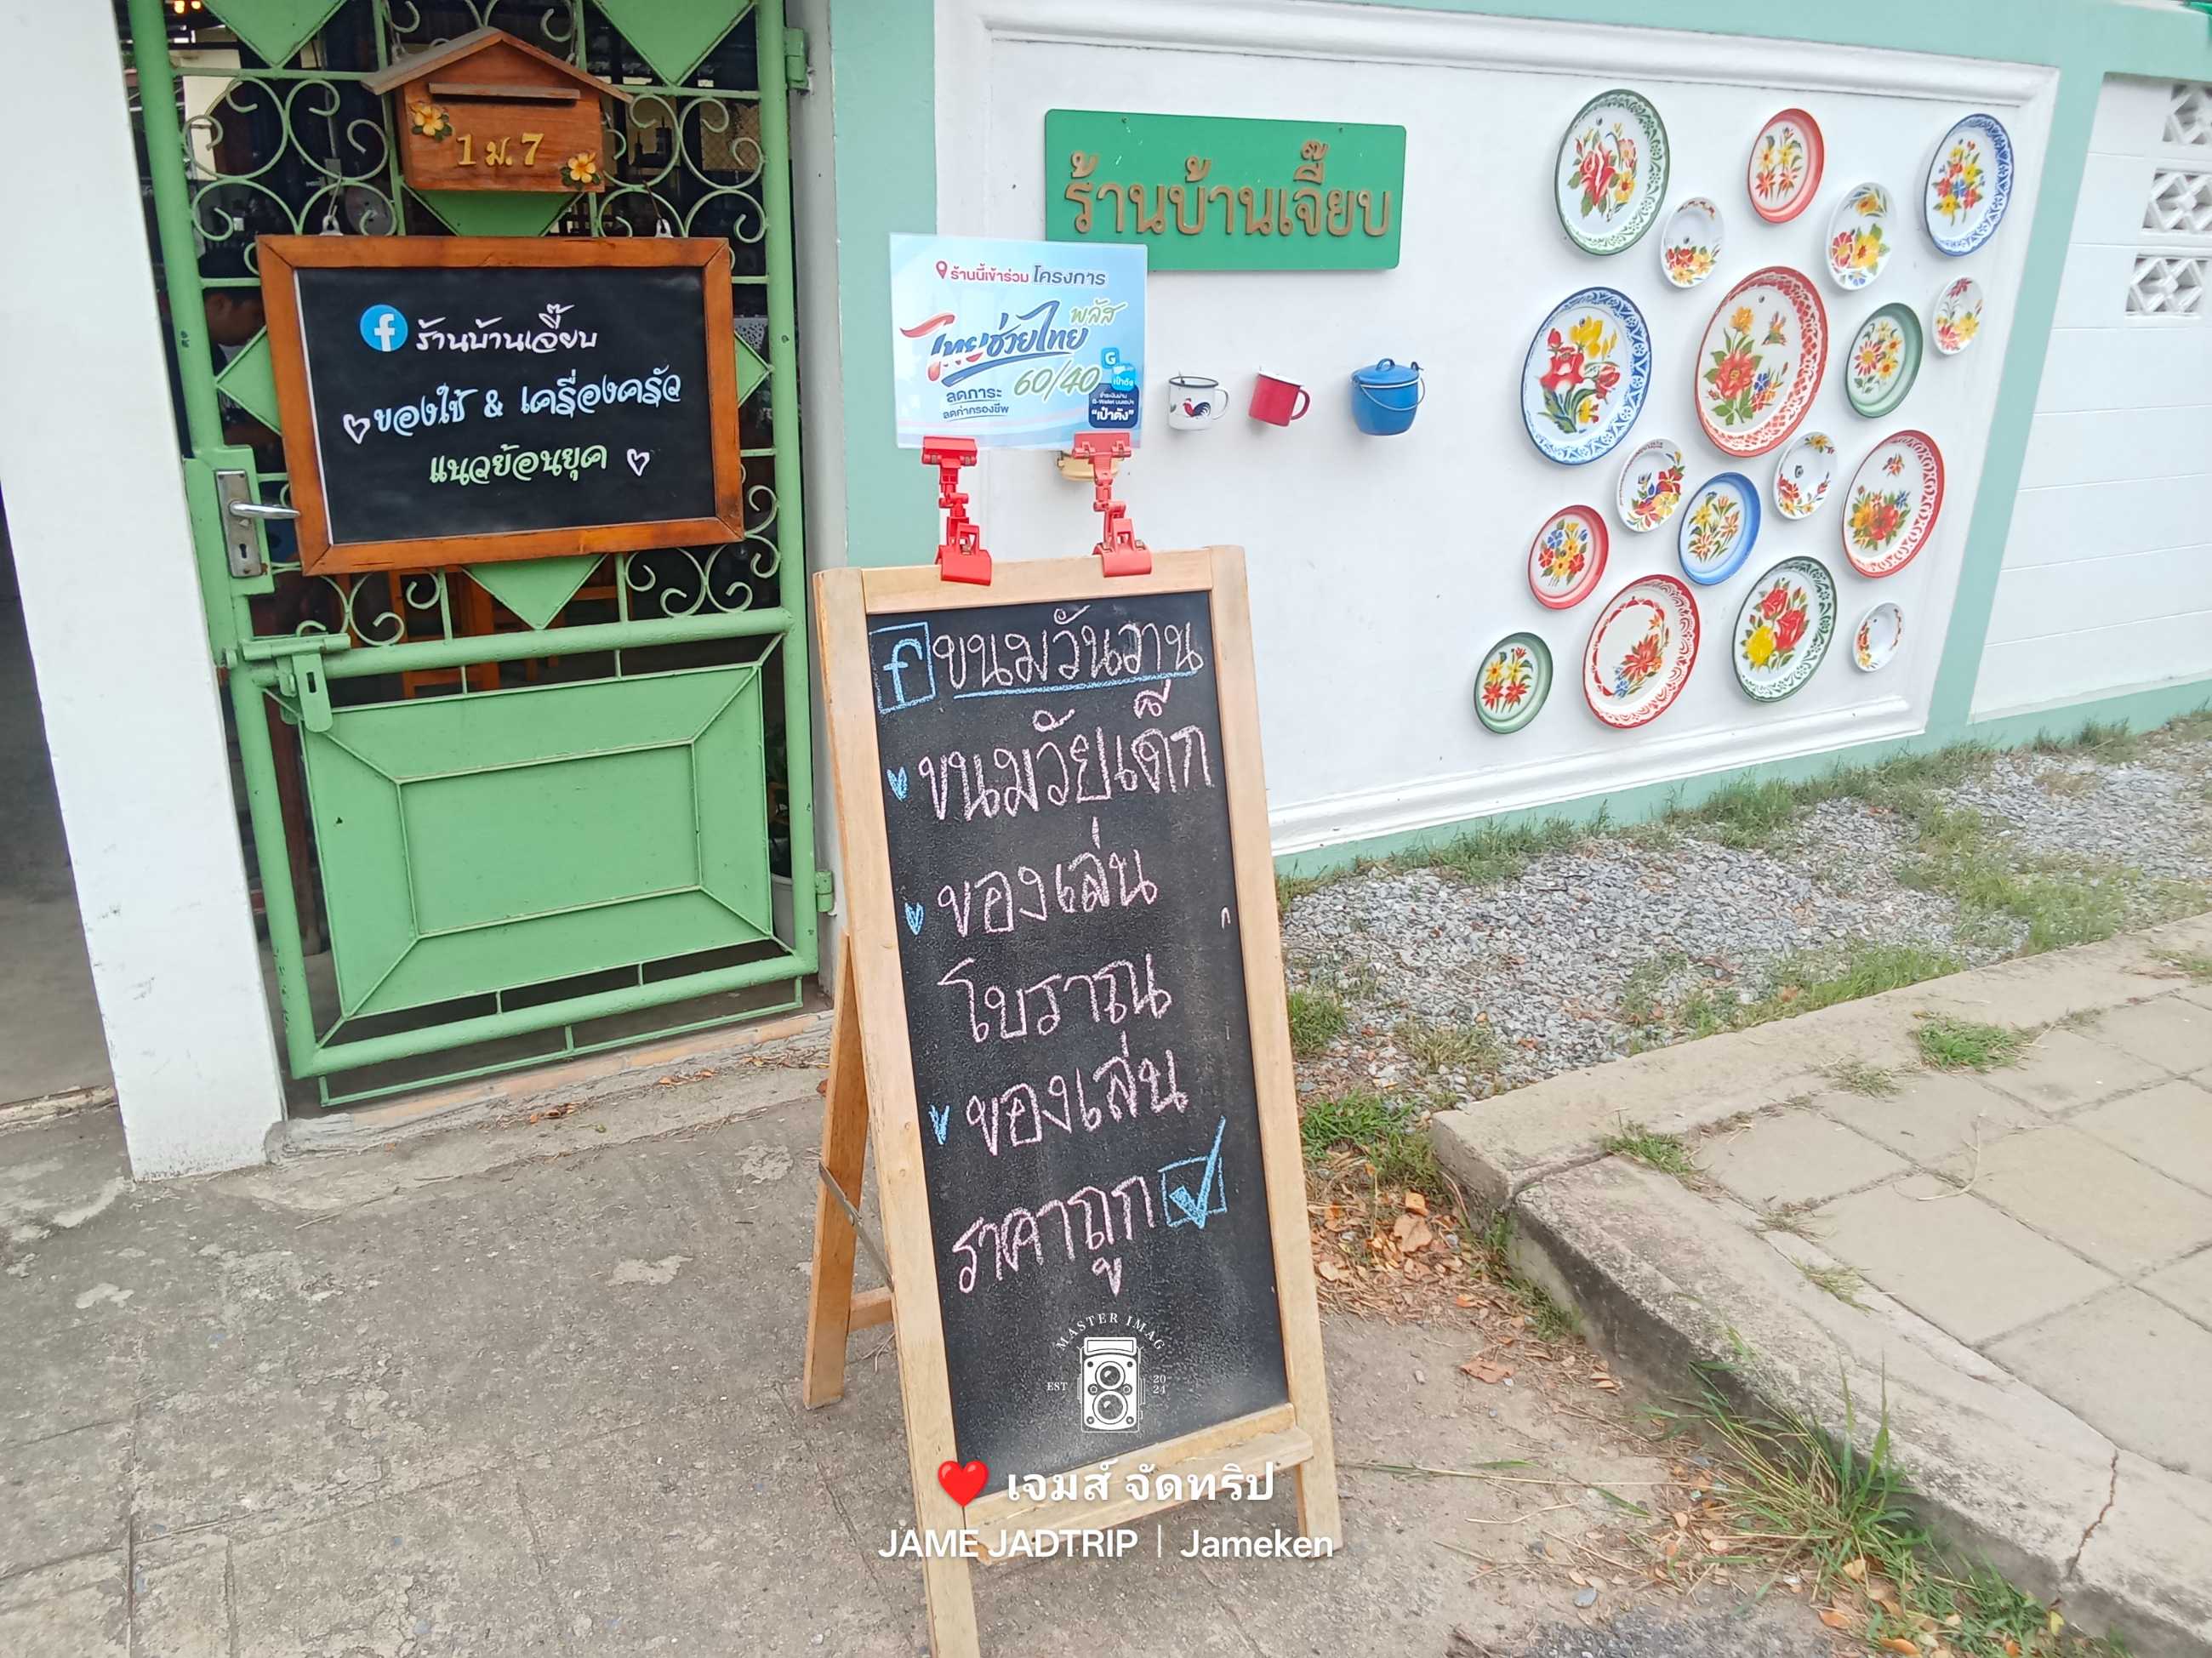 1 ม. 7
ร้านบ้านเจี๊ยบ
ของใช้ & เครื่องครัว
แนวย้อนยุค
ร้านบ้านเจี๊ยบ
ร้านนี้เข้าร่วม โครงการ
ไทยช่วยไทย พลัส
60/40
ลดภาระ
ลดค่าครองชีพ
G
เป๋าตัง
"เป๋าตัง"
f ขนมวันวาน
ขนมวัยเด็ก
ของเล่น
โบราณ
ของเล่น
ราคาถูก
MASTER IMAG
EST 2024
เจมส์ จัดทริป
JAME JADTRIP | Jameken